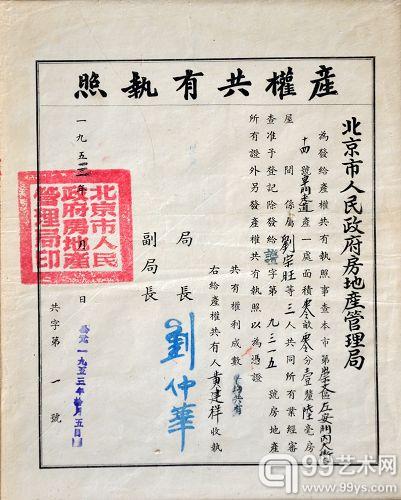 產權共有執照
北京市人民政府房地產管理局
為發給產權共有執照事查本市第區左安門內大街
十四號走道產一處面積零畝零分壹釐陸毫房
屋間係屬劉宗旺等三人共同所有業經審
查准予登記除發給證字第九三一五號房地產
所有證外另發產權共有執照以為憑證
共有權利成數共有
右給產權共有人黃建祥收執
局長
副局長
劉仲華
一九五三年月日
北京市人民
政府房地產
管理局印
公元一九五三年月五日
共字第一號
99艺术网
www.99ys.com